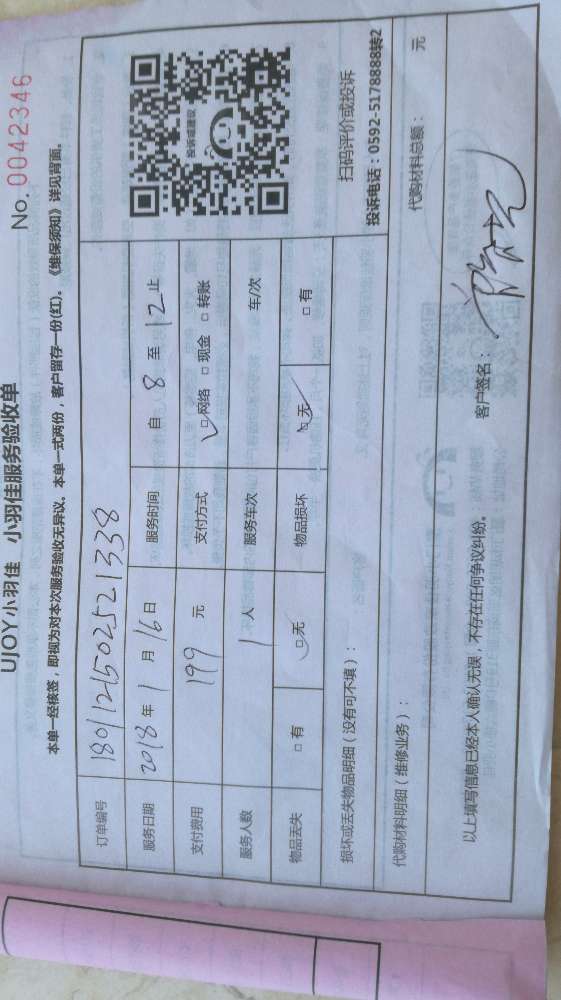 UJOY小羽佳 小羽佳服务验收单
No. 0042346
本单一经核签，即视为对本次服务验收无异议。本单一式两份，客户留存一份(红)。《维保须知》详见背面。
订单编号 1801121502521338
服务日期 2018年1月16日 服务时间 自 8 至 12 止
支付费用 199 元 支付方式 ☑网络 □现金 □转账
服务人数 1 人 服务车次 车/次
物品丢失 □有 ☑无 物品损坏 ☑无 □有
投诉或建议
扫码评价或投诉
投诉电话：0592-5178888转2
损坏或丢失物品明细（没有可不填）：
代购材料明细（维修业务）： 代购材料总额： 元
以上填写信息已经本人确认无误，不存在任何争议纠纷。 客户签名：